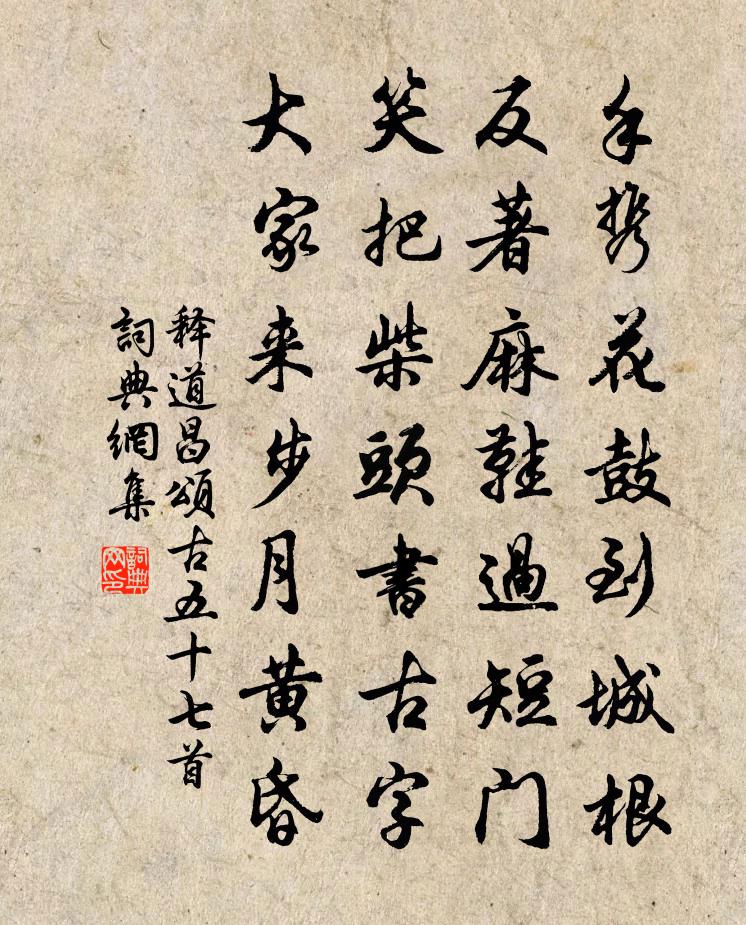 手携花鼓到城根
反著麻鞋過短门
笑把柴頭書古字
大家来步月黄昏
释道昌頌古五十七首
詞典網集
詞典网印